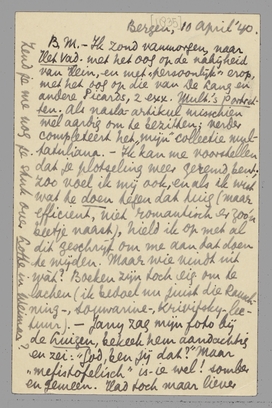 [V935]
Bergen, 10 April '40.
B.M. - Ik zond vanmorgen, naar
Het Vad. met het oog op de nabijheid
van Klein, en met "persoonlijk" erop,
met het oog op die van De Lang en
andere Picards, 2 exx. Mult.'s Portret-
ten. Als nasla-artikel misschien
wel aardig om te bezitten; verder
completeert het "mijn" collectie mul-
tatuliana. - Ik kan me voorstellen
dat je plotseling weer gezond bent;
zoo voel ik mij ook, en als ik wist
wat te doen tegen dat tuig (maar
efficient, niet romantisch er zoo'n
beetje naast), hield ik op met al
dit geschrijf om me aan dat doen
te wijden. Maar wie vindt uit
wàt? Boeken zijn toch eig. om te
lachen (ik bedoel nu juist die Rausch-
ning-, Krivitsky-lec-
tuur). - Jany zag mijn foto bij
de huizen, bekeek hem aandachtig
en zei: "God, ben jij dat?" Maar
"mefistofelisch" is-ie wel! somber
en gemeen. Had toch maar liever
Zend je me nog je stuk over Lotte in Weimar?